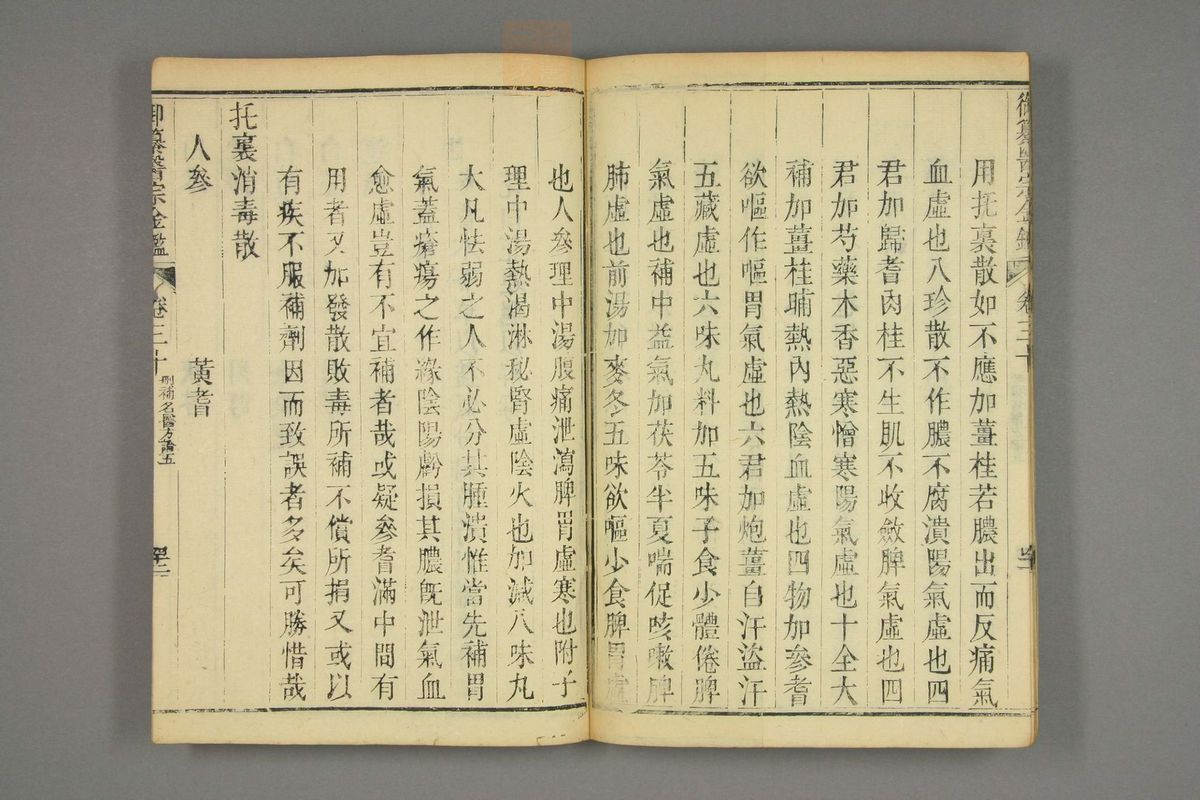 御纂醫宗金鑑 卷三十
用托裏散如不應加薑桂若膿出而反痛氣
血虛也八珍散不作膿不腐潰陽氣虛也四
君加歸耆肉桂不生肌不收斂脾氣虛也四
君加芍藥木香惡寒憎寒陽氣虛也十全大
補加薑桂晡熱內熱陰血虛也四物加參耆
欲嘔作嘔胃氣虛也六君加炮薑自汗盜汗
五藏虛也六味丸料加五味子食少體倦脾
氣虛也補中益氣加茯苓半夏喘促咳嗽脾
肺虛也前湯加麥冬五味欲嘔少食脾胃虛
也人參理中湯腹痛泄瀉脾胃虛寒也附子
理中湯熱渴淋秘腎虛陰火也加減八味丸
大凡怯弱之人不必分其腫潰惟當先補胃
氣蓋瘡瘍之作緣陰陽虧損其膿既泄氣血
愈虛豈有不宜補者哉或疑參耆滿中間有
用者又加發散敗毒所補不償所損又或以
有疾不服補劑因而致誤者多矣可勝惜哉
托裏消毒散
人參 黃耆
御纂醫宗金鑑 卷三十 刪補名醫方論五